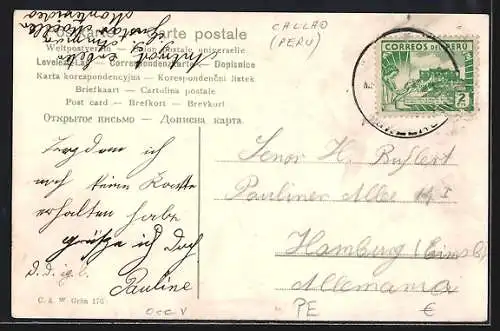 Postkarte — Carte postale
Weltpostverein — Union postale universelle
Levelező-Lap — Correspondenzkarte — Dopisnice
Karta korespondencyjna — Korespondenční lístek
Briefkaart — Cartolina postale
Post card — Brefkort — Brevkort
Открытое письмо — Дописна карта.
CALLAO
(PERU)
CORREOS DEL PERU
2
Trozdem ich
noch keine Karte
erhalten habe
grüsze ich Doch
D. D. ig. l.
Pauline
Senor H.
Pauliner Allee
Hamburg
Allemania
C. & W. Grän 176
Occ V
PE
€
Montevideo